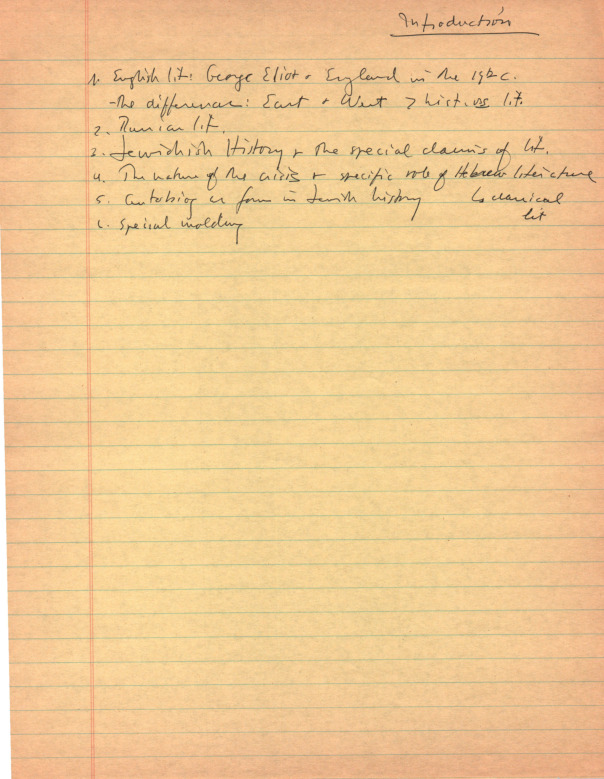 Introduction
1. English lit: George Eliot + England in the 19th c.
-the difference: East + West > hist. vs lit.
2. Russian lit.
3. Jewidhish History + the special claims of lit.
4. The nature of the crisis + specific role of Hebrew literature
5. autobiog as form in Jewish history ↳ classical
lit
6. Special molding